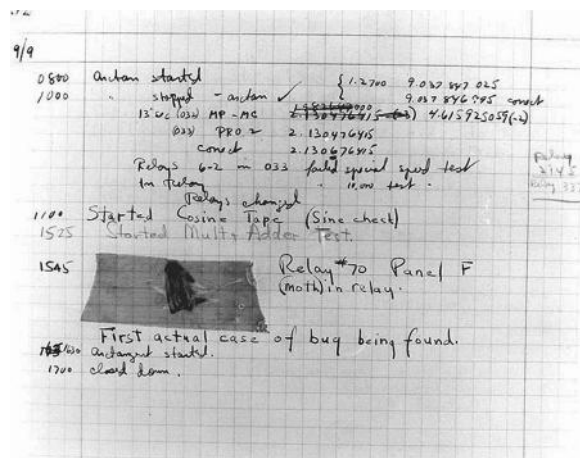 9/9
0800 antan started { 1.2700 9.037 847 025
1000 " stopped - antan ✓ 9.037 846 995 conect
13" uc (032) MP - MC 2.130476415 (-3) 4.615925059(-2)
(033) PRO 2 2.130476415
conect 2.130676415
Relays 6-2 in 033 failed special speed test
in Relay " 11.000 test.
Relays changed
1100 Started Cosine Tape (Sine check)
1525 Started Mult + Adder Test.
1545 Relay #70 Panel F
(moth) in relay.
First actual case of bug being found.
1630 antangent started.
1700 closed down.
Relay
2145
Relay 337